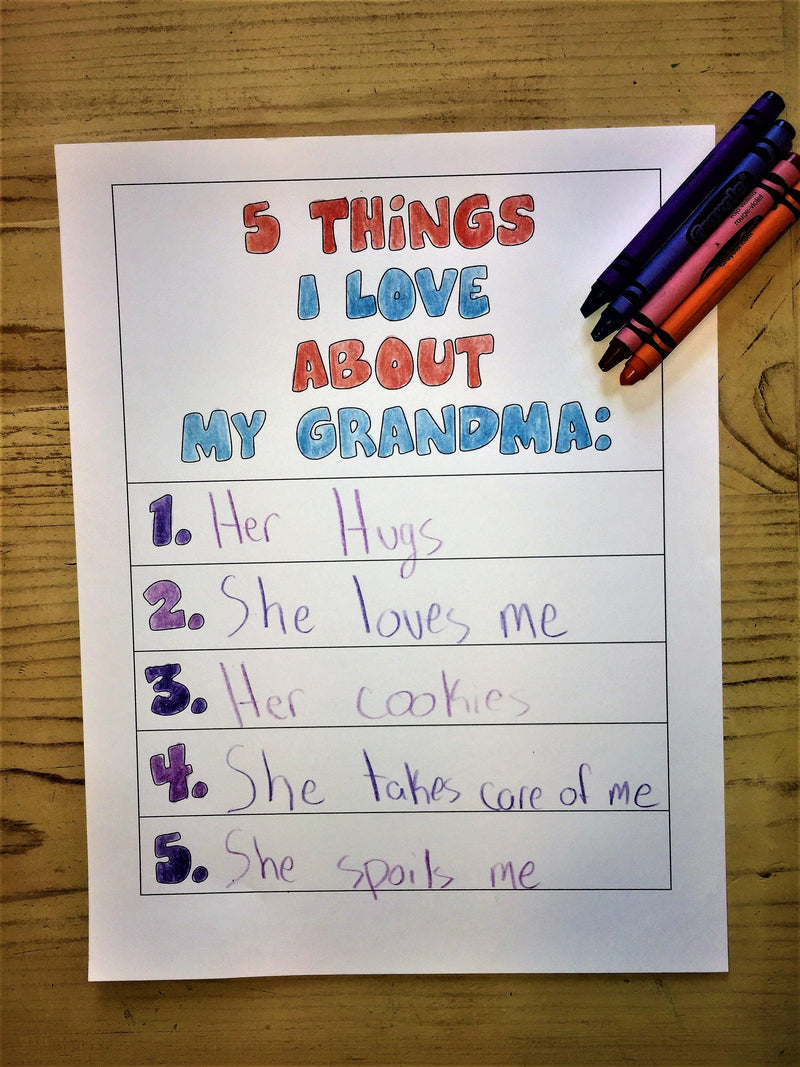 5 THiNGS
I LOVE
ABOUT
MY GRANDMA:
1. Her Hugs
2. She loves me
3. Her cookies
4. She takes care of me
5. She spoils me
Crayola
rouge-violet